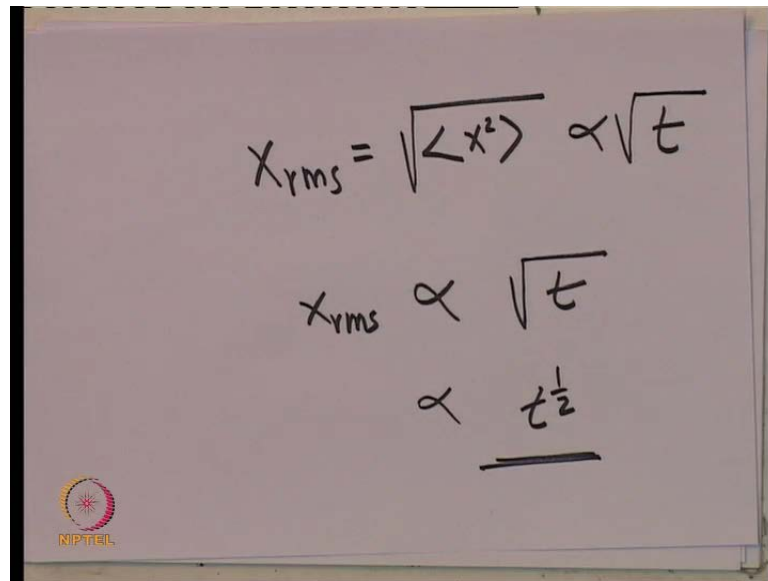 Xrms = √<x²> ∝ √t
xrms ∝ √t
∝ t^½
NPTEL